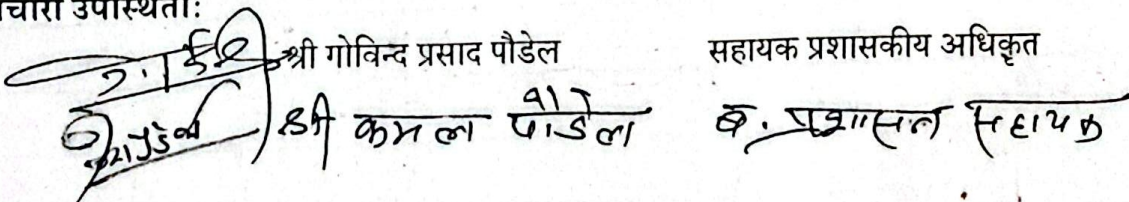 चारी उपस्थिती:
श्री गोविन्द प्रसाद पौडेल सहायक प्रशासकीय अधिकृत
श्री कमला पौडेल ब. प्रशासन सहायक